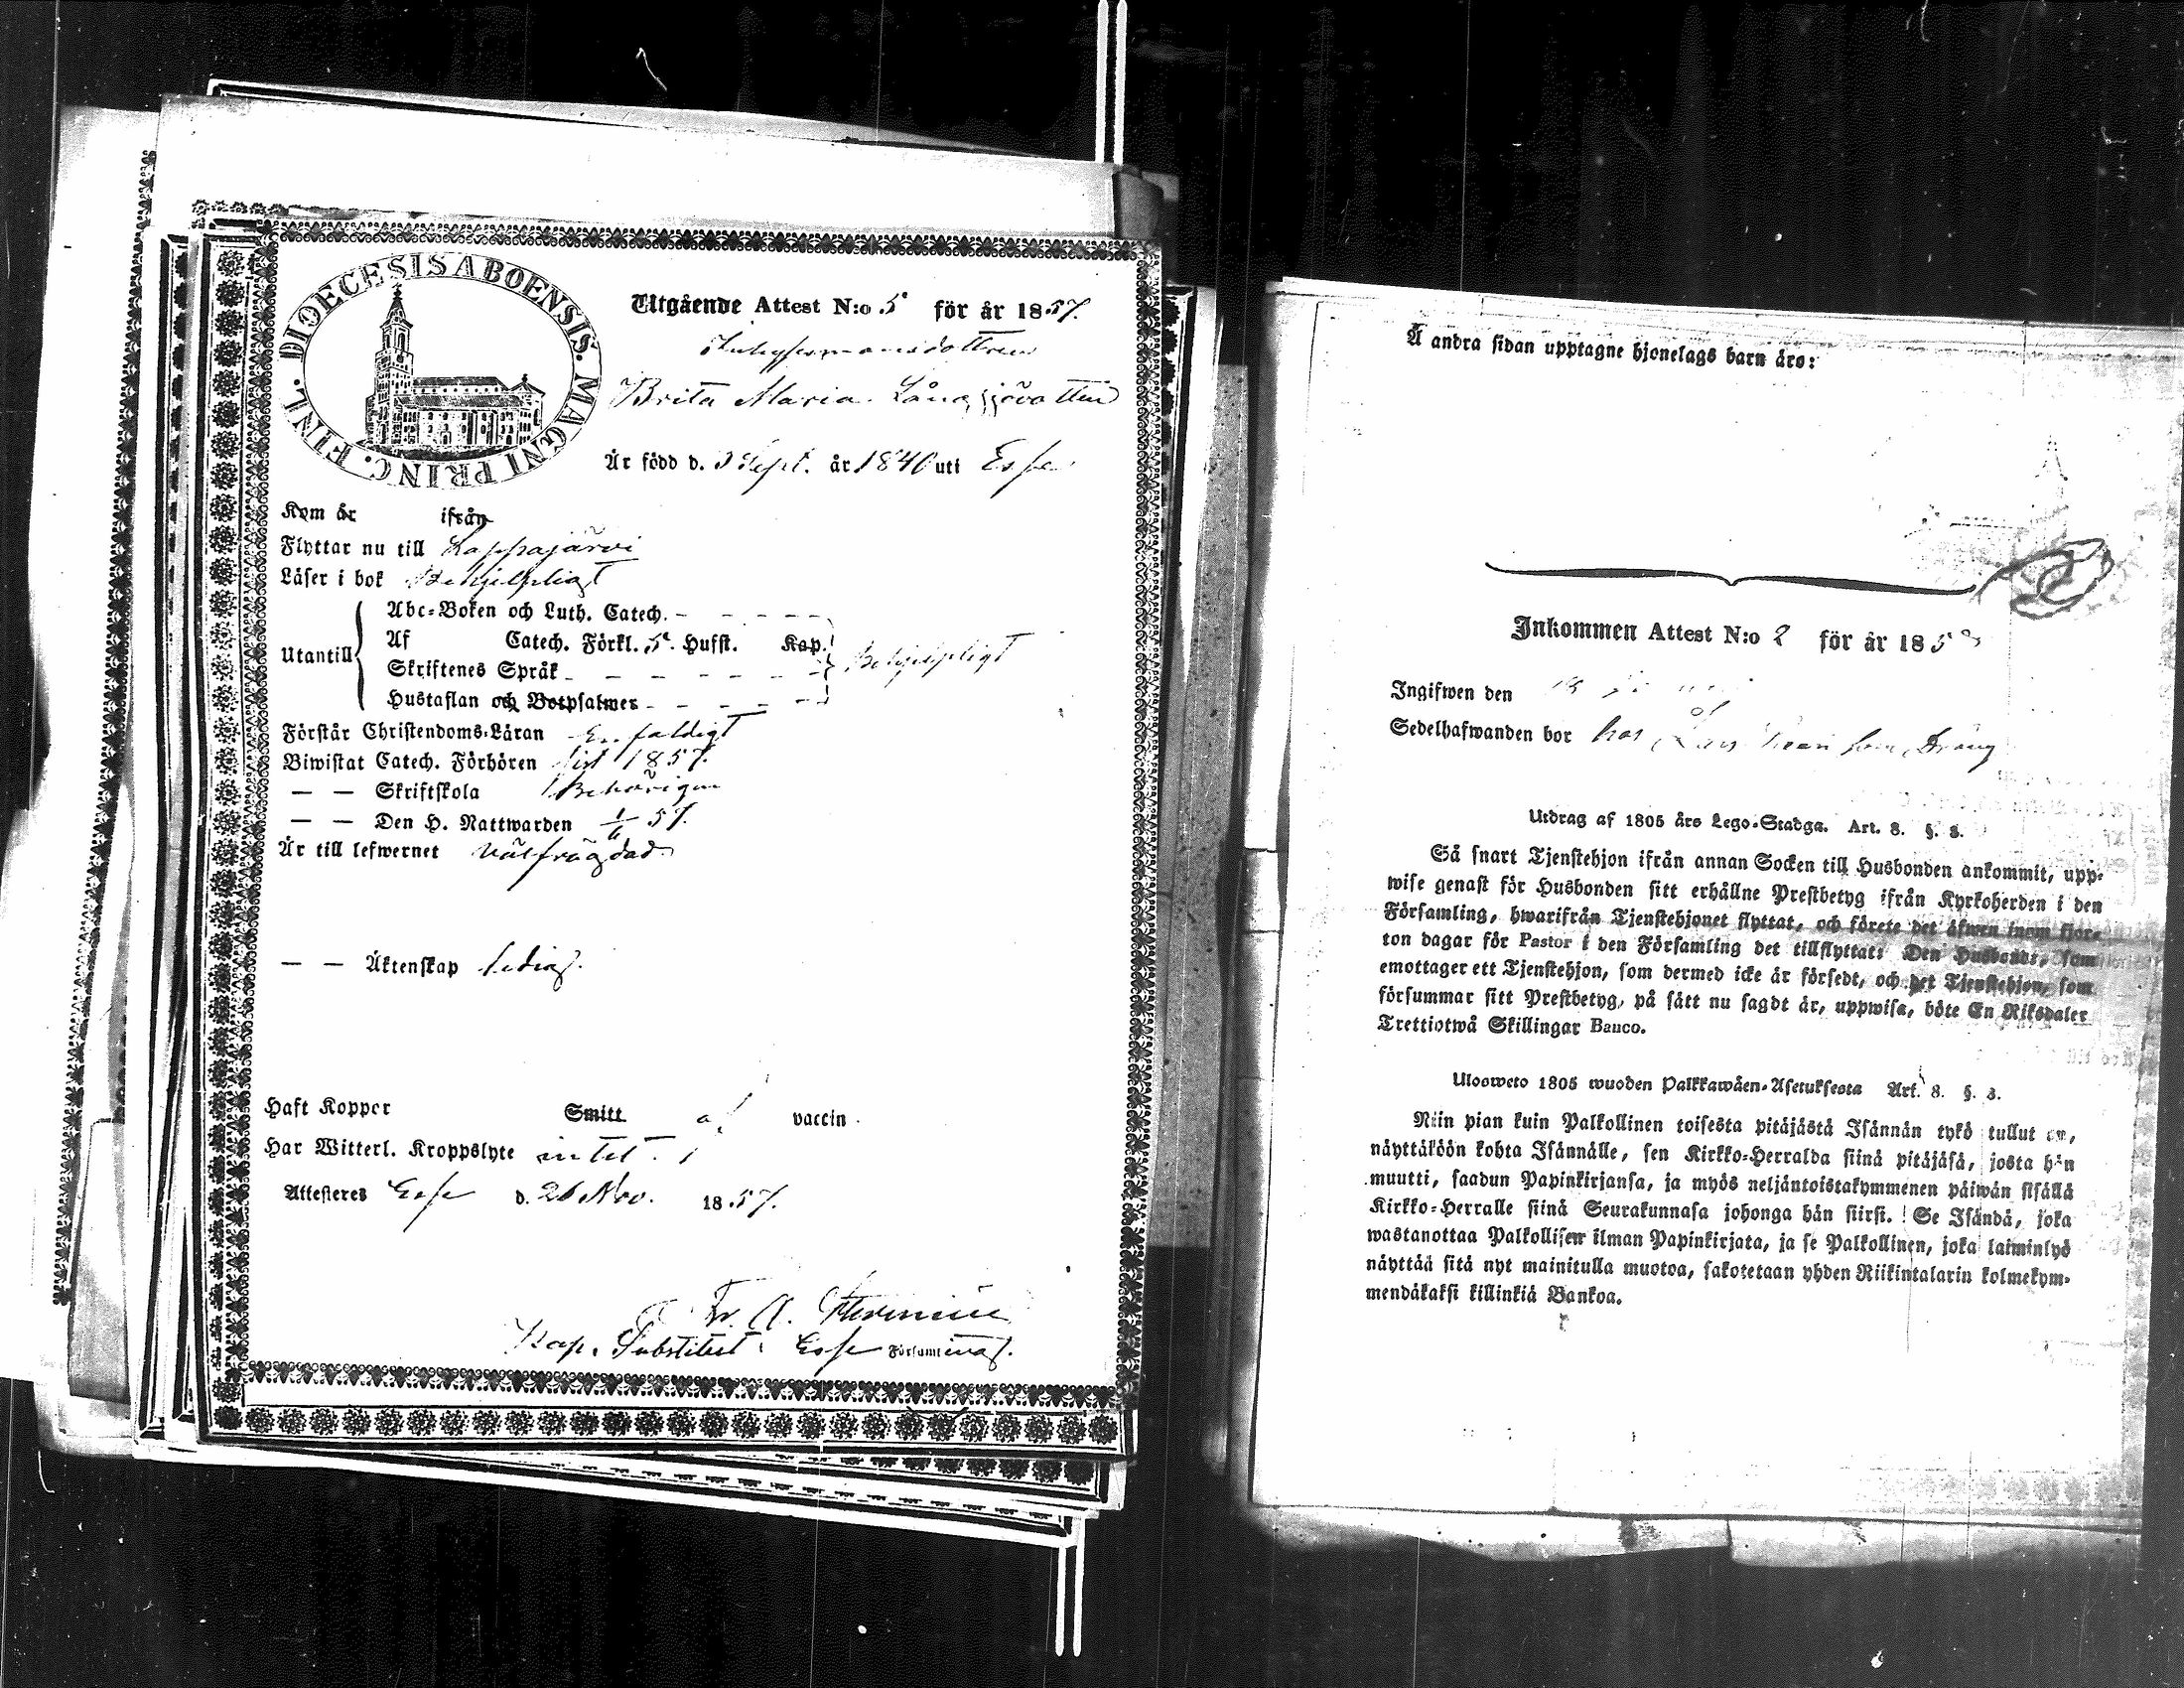 DIOECESIS ABOENSIS. MAGNI PRINC. FINL.
Utgående Attest N:o 5 för år 1857.
Brita Maria Långsjöv
Är född d. 3 Sept. år 1840 uti Esse
Kom år ifrån
Flyttar nu till Lappajärvi
Läser i bok Behjelpligt
Utantill
Abc-Boken och Luth. Catech. - - - - -
Af Catech. Förkl. 5. Hufst. Kap.
Skriftenes Språk - - - - - - -
Hustaflan och Botpsalmer - - - - -
Behjelpligt
Förstår Christendoms-Läran Enfaldigt
Biwistat Catech. Förhören sist 1857.
— — Skriftskola Behörigen
— — Den H. Nattwarden 1/6 57.
Är till lefwernet Välfrägdad
— — Äktenskap ledig.
Haft Koppor Smitt af vaccin.
Har Witterl. Kroppslyte intet.
Attesteres Esse d. 26 Nov. 1857.
Fr. A.
Kap. Substitut i Esse Församling.
Å andra sidan upptagne hjonelags barn äro:
Inkommen Attest N:o 2 för år 185
Ingifwen den
Sedelhafwanden bor hos Lars som Dräng
Utdrag af 1805 års Lego-Stadga. Art. 8. §. 3.
Så snart Tjenstehjon ifrån annan Socken till Husbonden ankommit, upp-
wise genast för Husbonden sitt erhållne Prestbetyg ifrån Kyrkoherden i den
Församling, hwarifrån Tjenstehjonet flyttat, och förete det äfwen inom fjor-
ton dagar för Pastor i den Församling det tillflyttat: Den Husbonde, som
emottager ett Tjenstehjon, som dermed icke är försedt, och det Tjenstehjon, som
försummar sitt Prestbetyg, på sätt nu sagdt är, uppwisa, böte En Riksdaler
Trettiotwå Skillingar Banco.
Ulosweto 1805 wuoden Palkkawäen-Asetuksesta Art. 8. §. 3.
Niin pian kuin Palkollinen toisesta pitäjästä Isännän tykö tullut on,
näyttäköön kohta Isännälle, sen Kirkko-Herralda siinä pitäjäsä, josta hän
muutti, saadun Papinkirjansa, ja myös neljäntoistakymmenen päiwän sisällä
Kirkko-Herralle siinä Seurakunnasa johonga hän siirsi. Se Isändä, joka
wastanottaa Palkollisen ilman Papinkirjata, ja se Palkollinen, joka laiminlyö
näyttää sitä nyt mainitulla muotoa, sakotetaan yhden Riikintalarin kolmekym-
mendäkaksi killinkiä Bankoa.